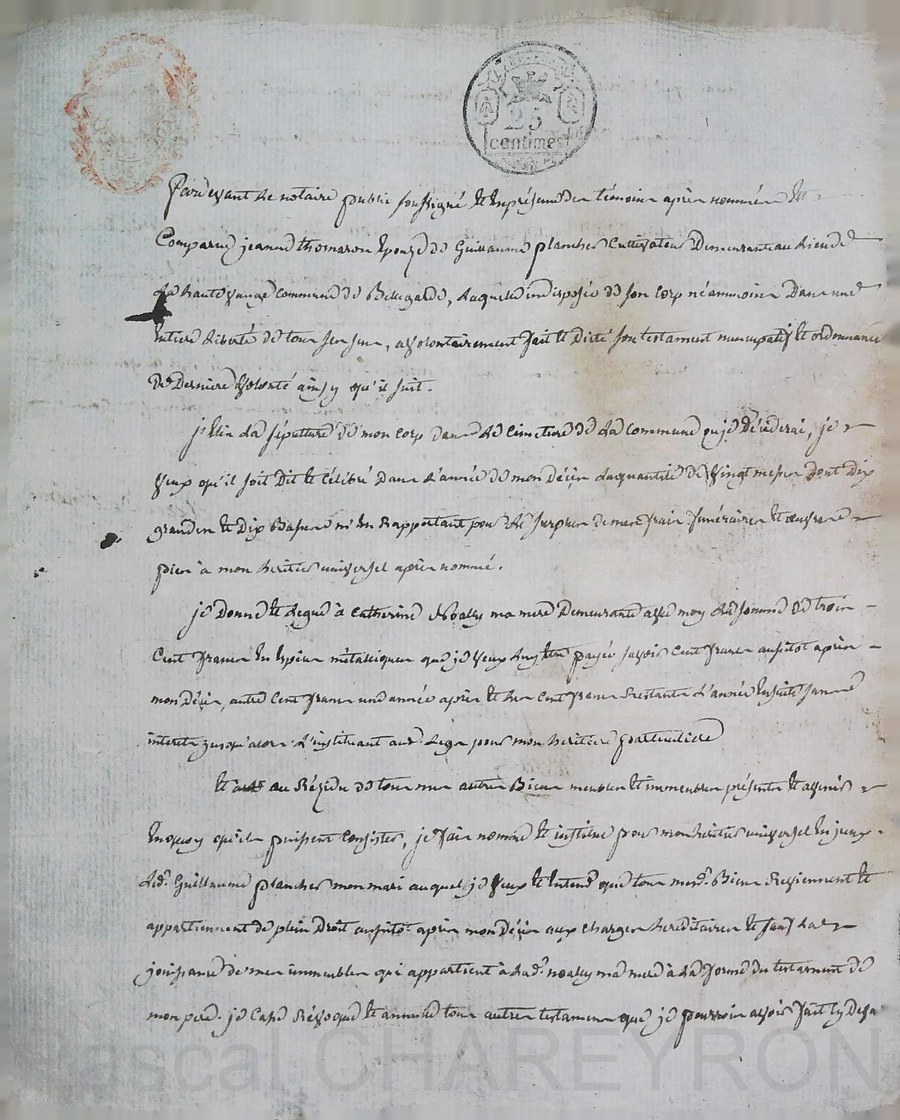 25
centimes
Pardevant le notaire public soussigné et en présence des témoins après nommés est
Comparue jeanne thomaron Epouze de Guillaume plancher Cultivateur Demeurante au Lieu de
la haute commune de Bellegarde, laquelle indisposée de son corp néammoins Dans une
Entiere liberté de tous ses sens, a volontairement fait et Dicté son testament nuncupatif et ordonnance
De Derniere volonté ainsy qu'il suit.
j'Elis la sépulture de mon corp Dans le Cimetiere de la commune ou je Décederai, je
veux qu'il soit Dit et Célébré Dans l'année de mon Décès la quantité de vingt messes dont Dix
grandes et Dix Basses m'en Rapportant pour le surplus de mes frais funéraires et oeuvres
pies à mon heritier universel après nommé.
je Donne et legue à Catherine Noally ma mere Demeurante avec moy la somme de trois
Cent francs En Espèces métalliques que je veux luy être payée savoir Cent francs aussitot après
mon Décès, autre Cent francs une année après et les Cent francs Restants l'année Ensuite sans
interets jusqu'alors L'instituant aud. Legs pour mon heritiere particuliere
Et au Résidu de tous mes autres Biens meubles et immeubles présents et avenirs
En quoy qu'ils puissent Consister, je fais nomme et institue pour mon heritier universel En iceux
led. Guillaume plancher mon mari auquel je veux et Entend que tous mesd. Biens Reviennent et
appartiennent de plein Droit aussitot après mon Décès aux charges hereditaires et sauf la
jouissance de mes immeubles qui appartient à lad. noally ma mere à la forme du testament de
mon pere. je Casse Révoque et annulle tous autres testaments que je pourrois avoir fait cy Deva
Pascal CHAREYRON